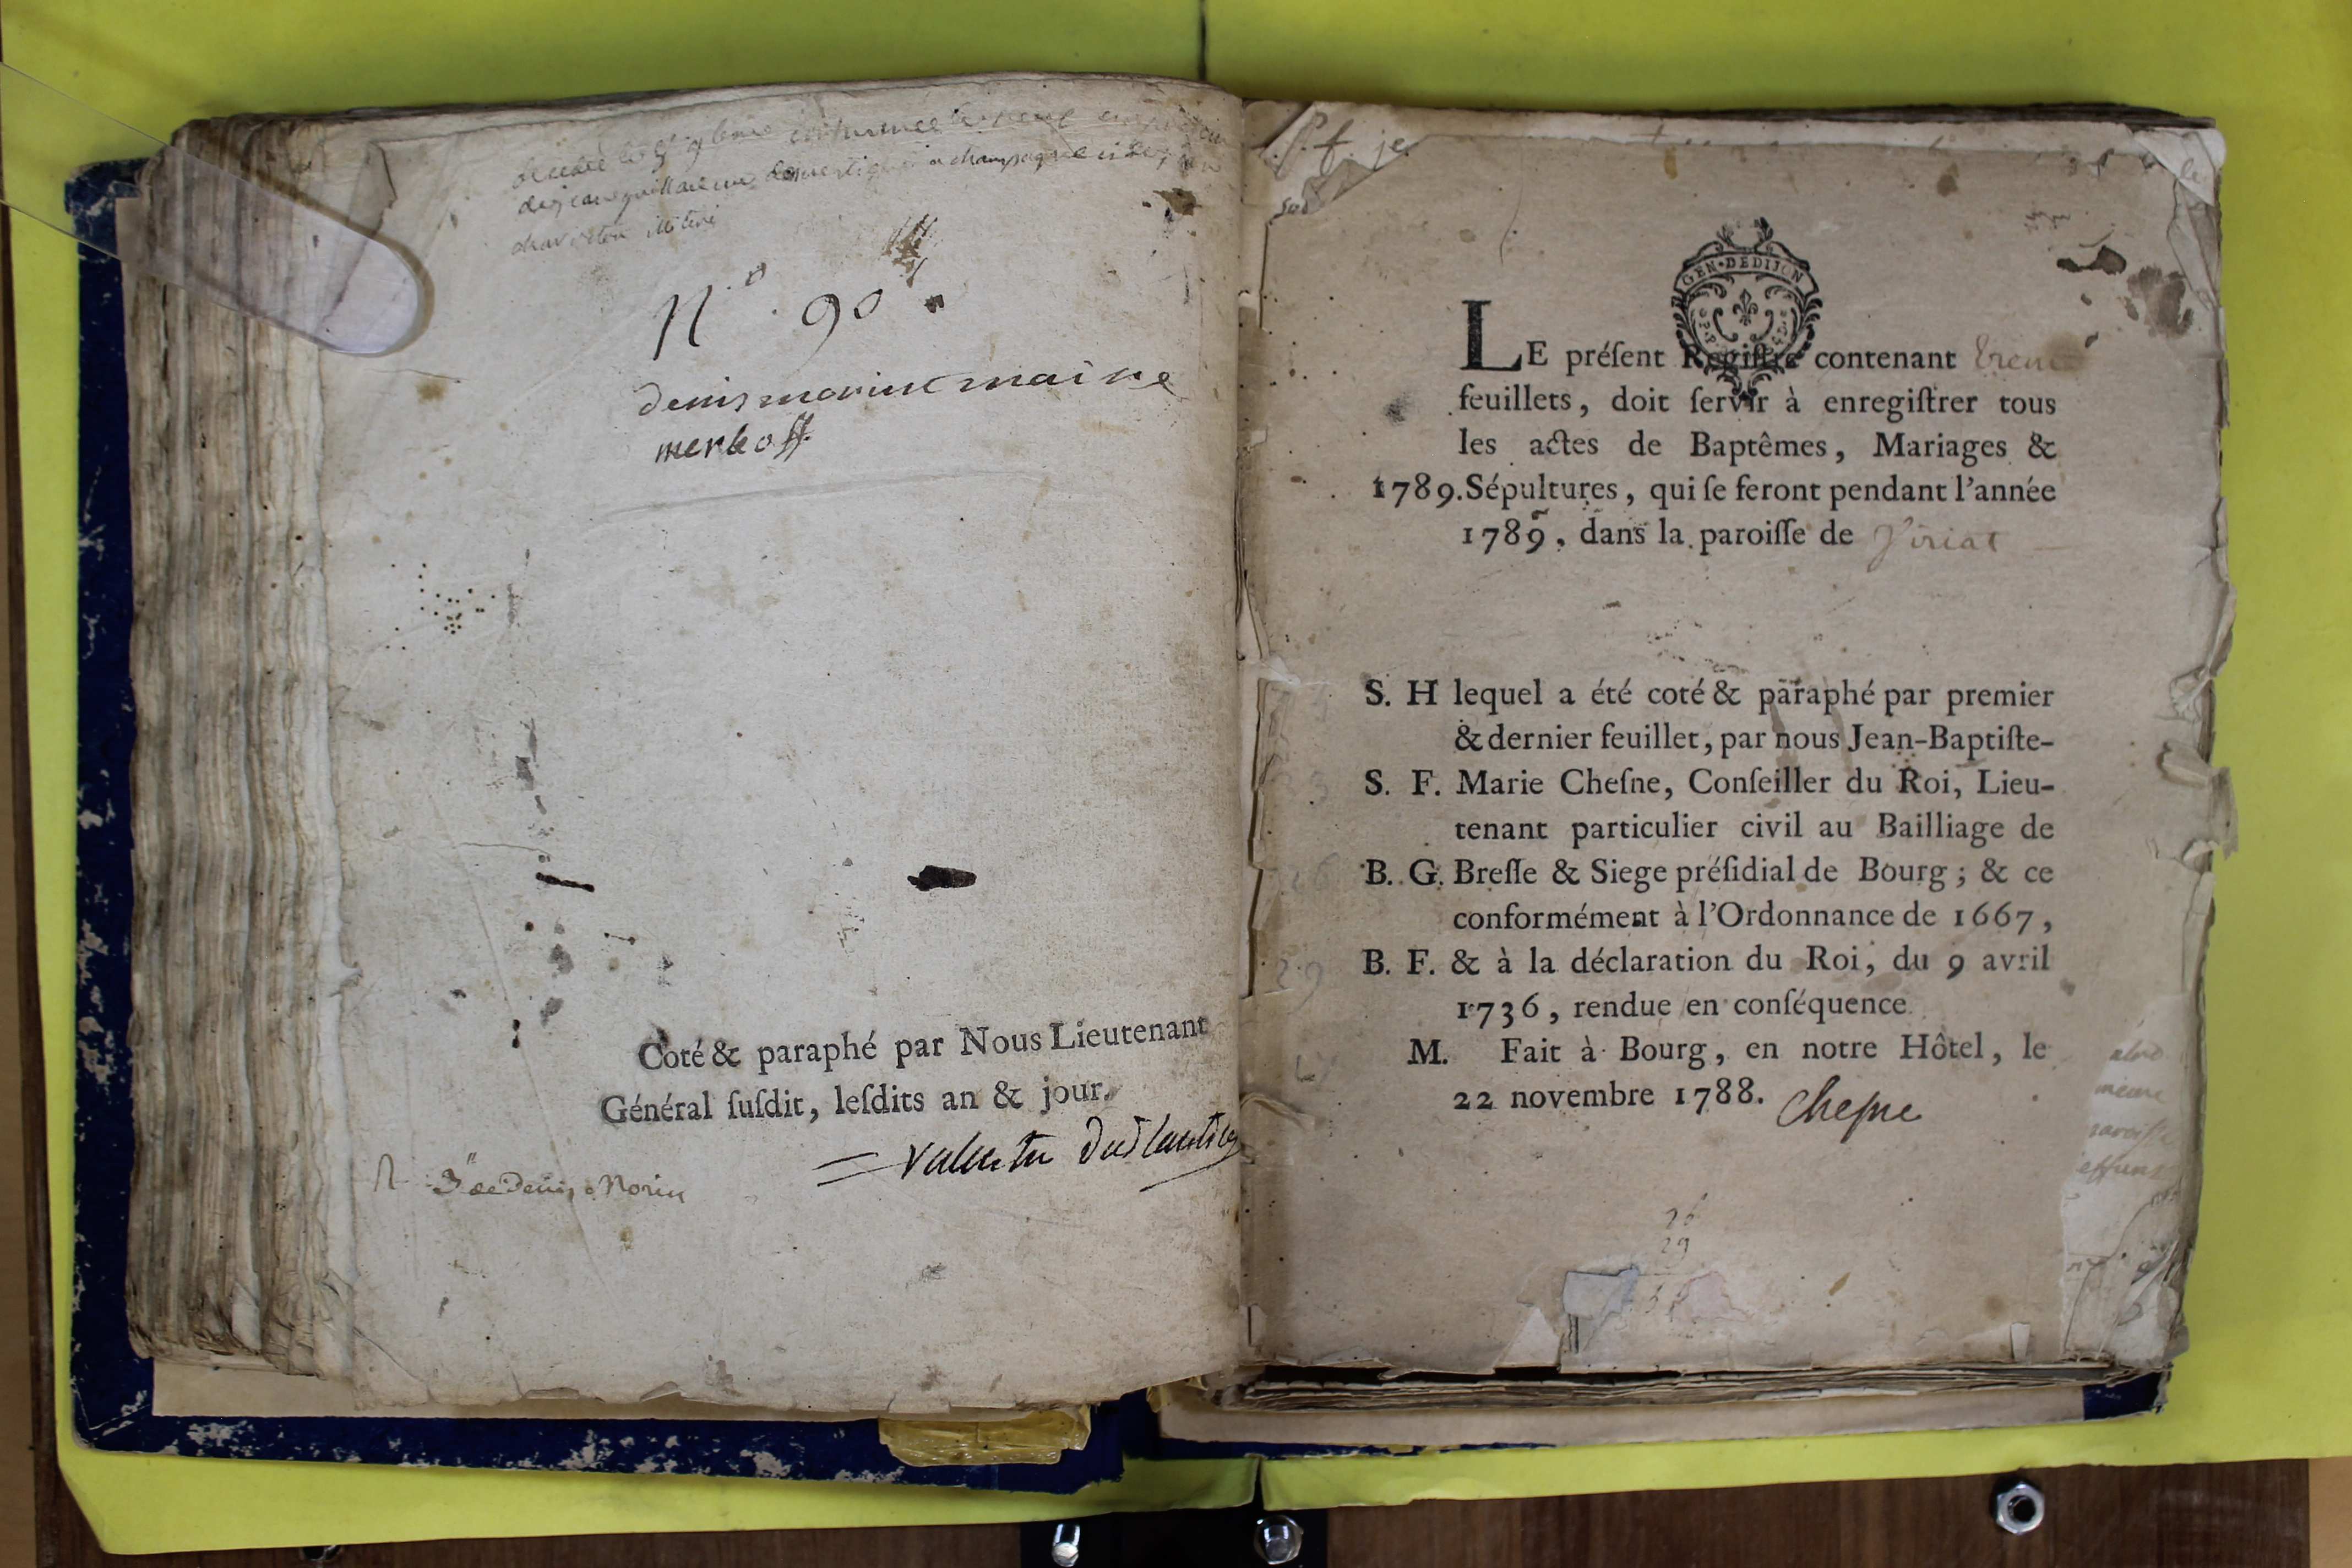 N.° 90
denis morin maire
Coté & paraphé par Nous Lieutenant
Général ſuſdit, leſdits an & jour.
3" de Denis Morin
GEN · DE DIJON
LE préſent Regiſtre contenant
feuillets, doit ſervir à enregiſtrer tous
les actes de Baptêmes, Mariages &
1789. Sépultures, qui ſe feront pendant l'année
1789, dans la paroiſſe de Viriat
S. H lequel a été coté & paraphé par premier
& dernier feuillet, par nous Jean-Baptiſte-
S. F. Marie Cheſne, Conſeiller du Roi, Lieu-
tenant particulier civil au Bailliage de
B. G. Breſſe & Siege préſidial de Bourg ; & ce
conformément à l'Ordonnance de 1667,
B. F. & à la déclaration du Roi, du 9 avril
1736, rendue en conſéquence
M. Fait à Bourg, en notre Hôtel, le
22 novembre 1788. Cheſne
26
29